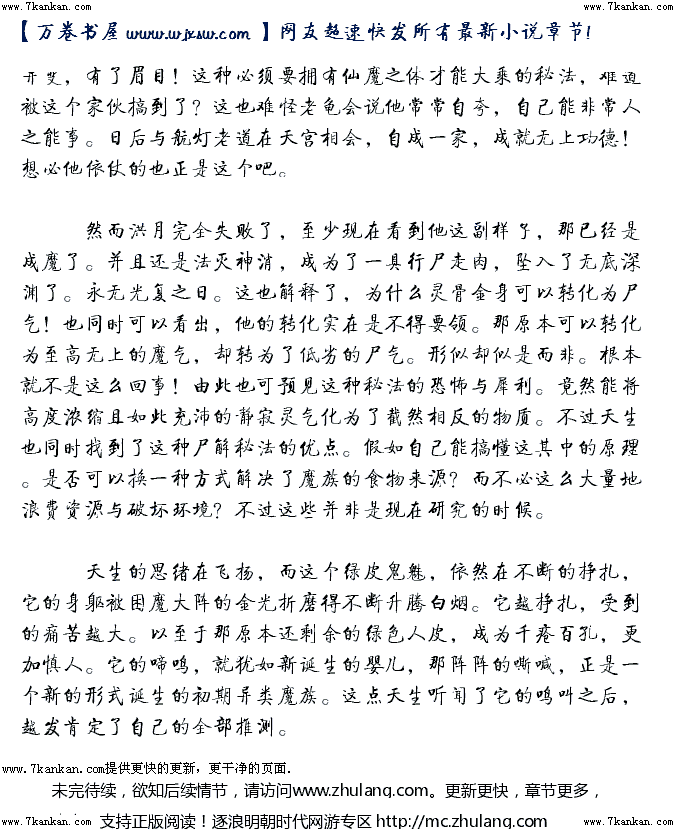 www.7kankan.com www.7kankan.com
【万卷书屋 www.wjxsw.com 】网友超速快发所有最新小说章节!
开斐，有了眉目！这种必须要拥有仙魔之体才能大乘的秘法，难道
被这个家伙搞到了？这也难怪老龟会说他常常自夸，自己能非常人
之能事。日后与航灯老道在天宫相会，自成一家，成就无上功德！
想必他依仗的也正是这个吧。
然而洪月完全失败了，至少现在看到他这副样子，那已经是
成魔了。并且还是法灭神消，成为了一具行尸走肉，坠入了无底深
渊了。永无光复之日。这也解释了，为什么灵骨金身可以转化为尸
气！也同时可以看出，他的转化实在是不得要领。那原本可以转化
为至高无上的魔气，却转为了低劣的尸气。形似却似是而非。根本
就不是这么回事！由此也可预见这种秘法的恐怖与犀利。竟然能将
高度浓缩且如此充沛的静寂灵气化为了截然相反的物质。不过天生
也同时找到了这种尸解秘法的优点。假如自己能搞懂这其中的原理
。是否可以换一种方式解决了魔族的食物来源？而不必这么大量地
浪费资源与破坏环境？不过这些并非是现在研究的时候。
天生的思绪在飞扬，而这个绿皮鬼魅，依然在不断的挣扎，
它的身躯被困魔大阵的金光折磨得不断升腾白烟。它越挣扎，受到
的痛苦越大。以至于那原本还剩余的绿色人皮，成为千疮百孔，更
加慎人。它的啼鸣，就犹如新诞生的婴儿，那阵阵的嘶喊，正是一
个新的形式诞生的初期异类魔族。这点天生听闻了它的鸣叫之后，
越发肯定了自己的全部推测。
www.7kankan.com提供更快的更新，更干净的页面.
未完待续，欲知后续情节，请访问www.zhulang.com。更新更快，章节更多，
支持正版阅读！逐浪明朝时代网游专区 http://mc.zhulang.com
www.7kankan.com www.7kankan.com